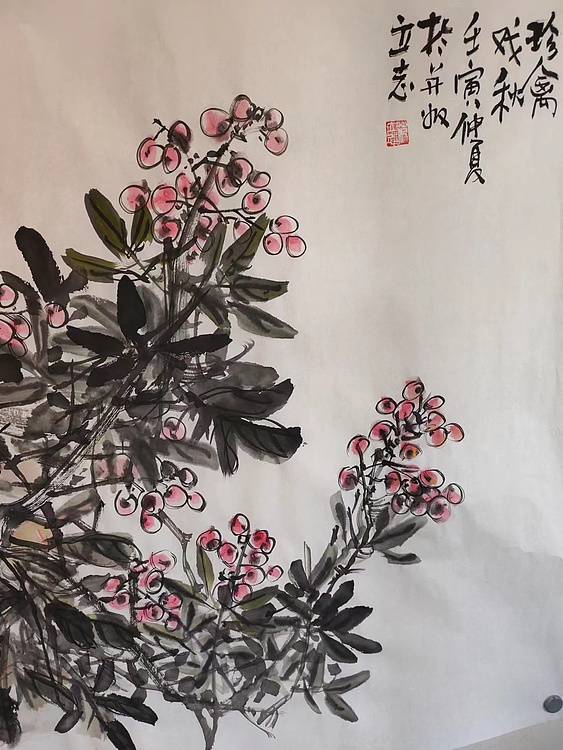 珍禽
戏秋
壬寅仲夏
於并州
立志